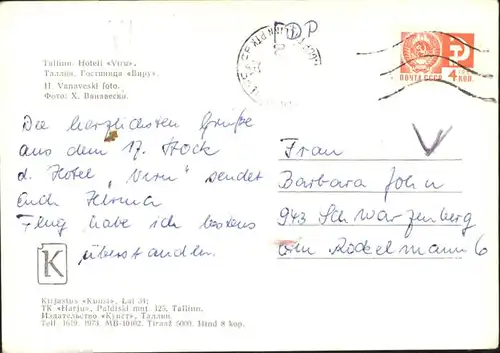 Tallinn. Hotell «Viru».
Таллин. Гостиница «Виру».
H. Vanaveski foto.
Фото: Х. Ванавески.
ПОЧТА СССР 4 КОП.
Die herzlichsten Grüße
aus dem 17. Stock
d. Hotel „Viru" sendet
Euch Helmut
Flug habe ich bestens
überstanden.
Frau
Barbara John
943 Schwarzenberg
Rockelmann 6
K
Kirjastus «Kunst», Lai 34;
TK «Harju», Paldiski mnt 325, Tallinn.
Издательство «Кунст», Таллин.
Tell. 1619. 1973. MB-10102. Tiraaž 5000. Hind 8 kop.